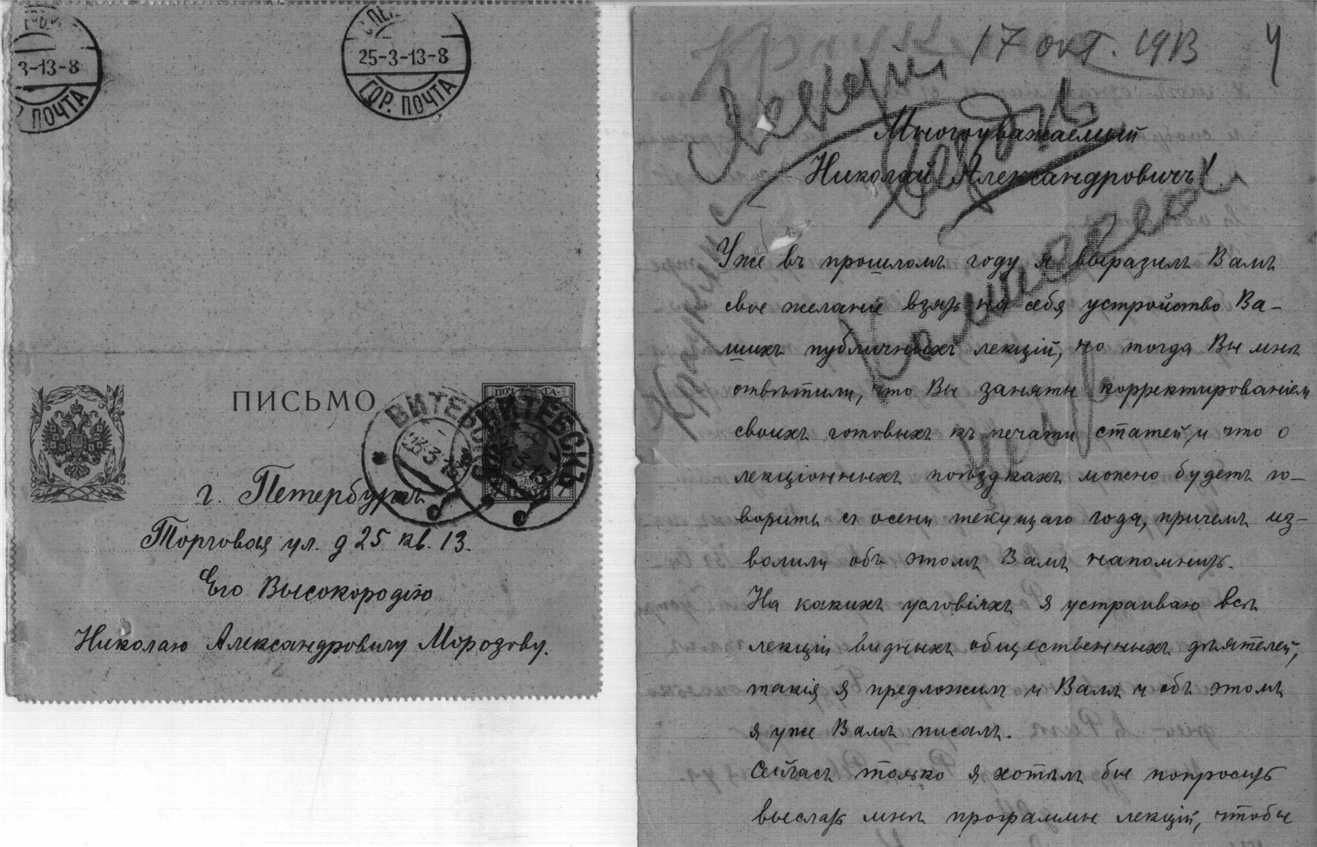 3-13-8
ПОЧТА
25-3-13-8
ГОР. ПОЧТА
ПИСЬМО
ВИТЕБСКЪ
ВИТЕБСКЪ
г. Петербургъ
Торговая ул. д 25 кв. 13.
Его Высокородію
Николаю Александровичу Морозову.
17 окт. 1913
Многоуважаемый
Николай Александровичъ!
Уже въ прошломъ году я выразилъ Вамъ
свое желаніе взять на себя устройство Ва-
шихъ публичныхъ лекцій, но тогда Вы мнѣ
отвѣтили, что Вы заняты корректированіем
своихъ готовыхъ къ печати статей, и что о
лекціонныхъ поѣздкахъ можно будетъ го-
ворить съ осени текущаго года, причемъ из-
волили объ этомъ Вамъ напомнить.
На какихъ условіяхъ я устраиваю всѣ
лекціи видныхъ общественныхъ дѣятелей,
такія я предложилъ и Вамъ и объ этомъ
я уже Вамъ писалъ.
Сейчасъ только я хотѣлъ бы попросить
выслать мнѣ программы лекцій, чтобы